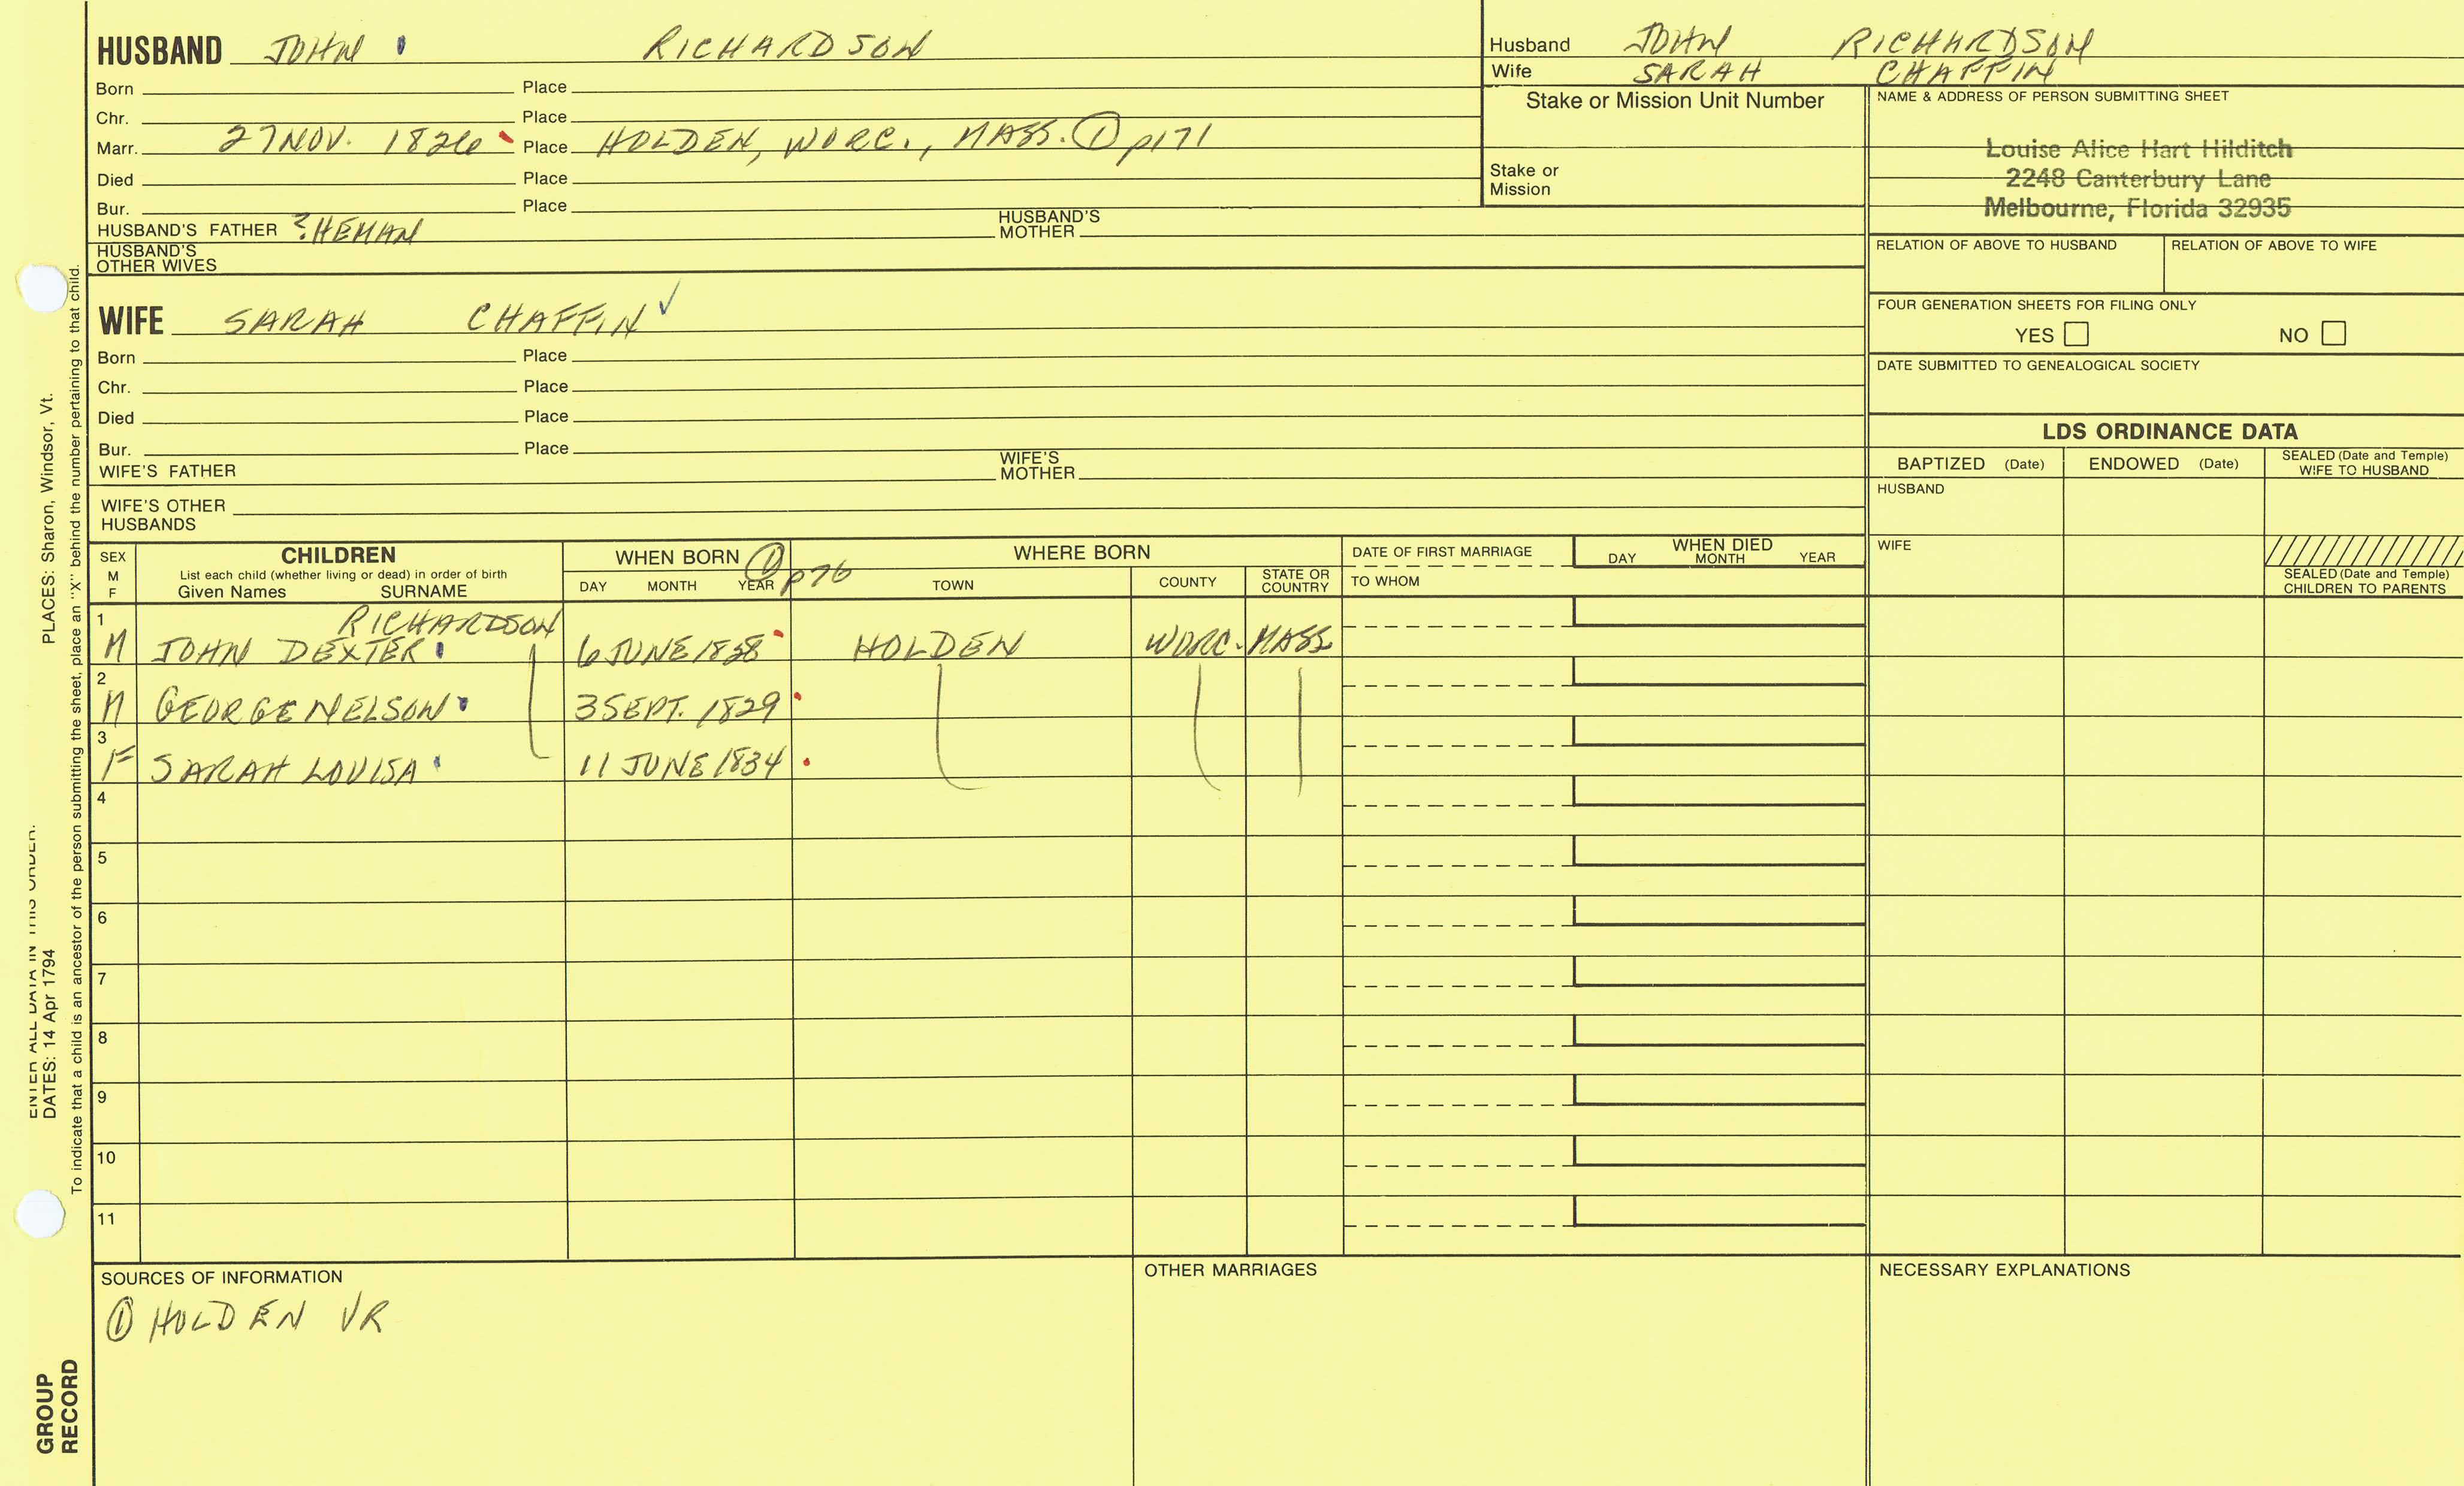 HUSBAND JOHN RICHARDSON
Born Place
Chr. Place
Marr. 27 NOV. 1826 Place HOLDEN, WORC., MASS. ① p171
Died Place
Bur. Place
HUSBAND'S FATHER ? HEMAN HUSBAND'S MOTHER
HUSBAND'S OTHER WIVES
Husband JOHN RICHARDSON
Wife SARAH CHAFFIN
Stake or Mission Unit Number
Stake or Mission
NAME & ADDRESS OF PERSON SUBMITTING SHEET
Louise Alice Hart Hilditch
2248 Canterbury Lane
Melbourne, Florida 32935
RELATION OF ABOVE TO HUSBAND RELATION OF ABOVE TO WIFE
FOUR GENERATION SHEETS FOR FILING ONLY
YES NO
DATE SUBMITTED TO GENEALOGICAL SOCIETY
WIFE SARAH CHAFFIN ✓
Born Place
Chr. Place
Died Place
Bur. Place
WIFE'S FATHER WIFE'S MOTHER
WIFE'S OTHER HUSBANDS
LDS ORDINANCE DATA
BAPTIZED (Date) ENDOWED (Date) SEALED (Date and Temple) WIFE TO HUSBAND
HUSBAND
WIFE
SEALED (Date and Temple) CHILDREN TO PARENTS
SEX M F
CHILDREN
List each child (whether living or dead) in order of birth
Given Names SURNAME
WHEN BORN ① p76
DAY MONTH YEAR
WHERE BORN
TOWN COUNTY STATE OR COUNTRY
DATE OF FIRST MARRIAGE
TO WHOM
WHEN DIED
DAY MONTH YEAR
1 RICHARDSON
M JOHN DEXTER 6 JUNE HOLDEN WORC. MASS
2
M GEORGE NELSON 3 SEPT. 1829
3
F SARAH LOUISA 11 JUNE 1834
4
5
6
7
8
9
10
11
SOURCES OF INFORMATION
① HOLDEN VR
OTHER MARRIAGES
NECESSARY EXPLANATIONS
PLACES: Sharon, Windsor, Vt.
ENTER ALL DATA IN THIS ORDER:
DATES: 14 Apr 1794
To indicate that a child is an ancestor of the person submitting the sheet, place an "X" behind the number pertaining to that child.
GROUP
RECORD